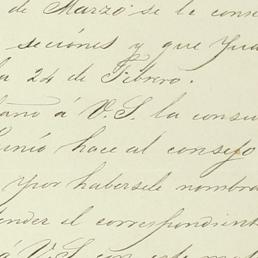 de Marzo se la conse
seciónes y que Jua
la 24 de Febrero.
ano á V. S. la consu
Junió hace al consejo
por habersele nombra
ender el correspondient
á V. S. con este mot